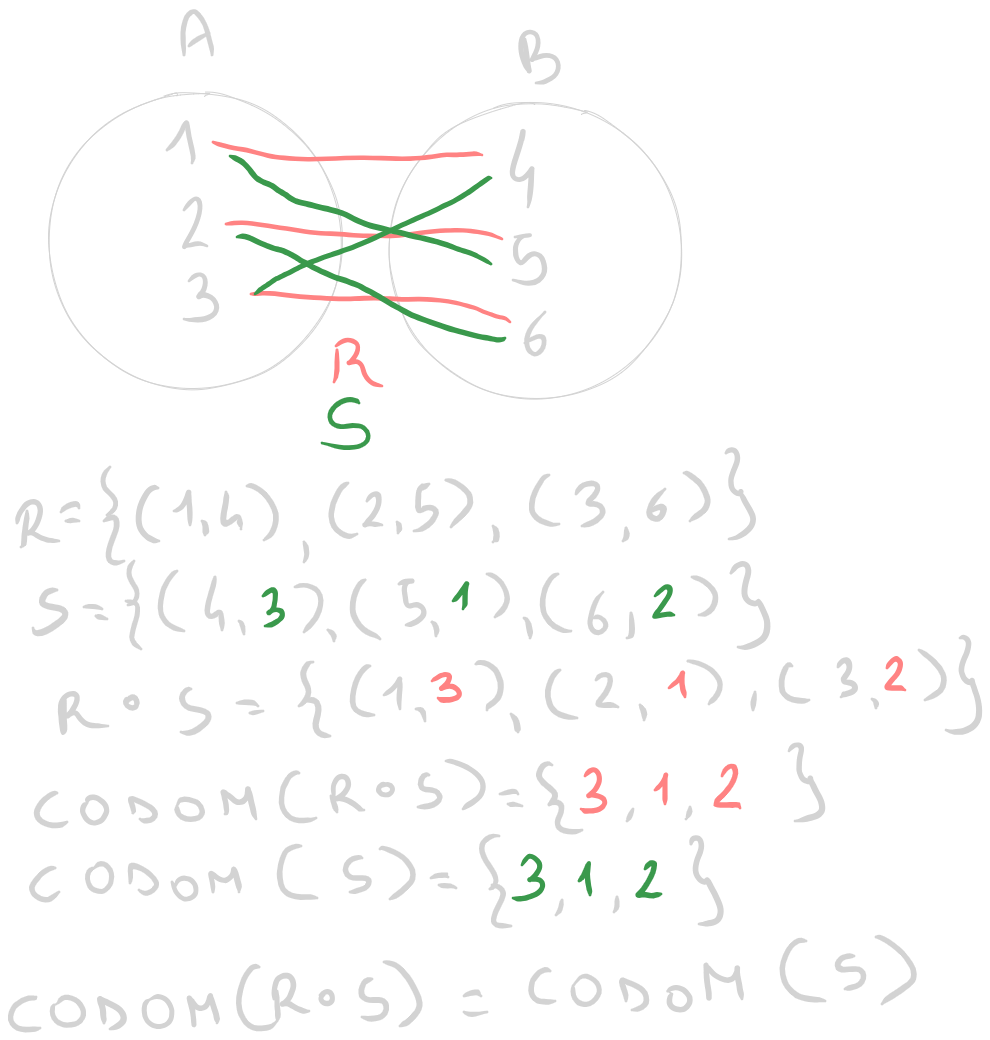 A
B
1
4
2
5
3
6
R
S
R={(1,4),(2,5),(3,6)}
S={(4,3),(5,1),(6,2)}
R∘S={(1,3),(2,1),(3,2)}
CODOM(R∘S)={3,1,2}
CODOM(S)={3,1,2}
CODOM(R∘S)=CODOM(S)